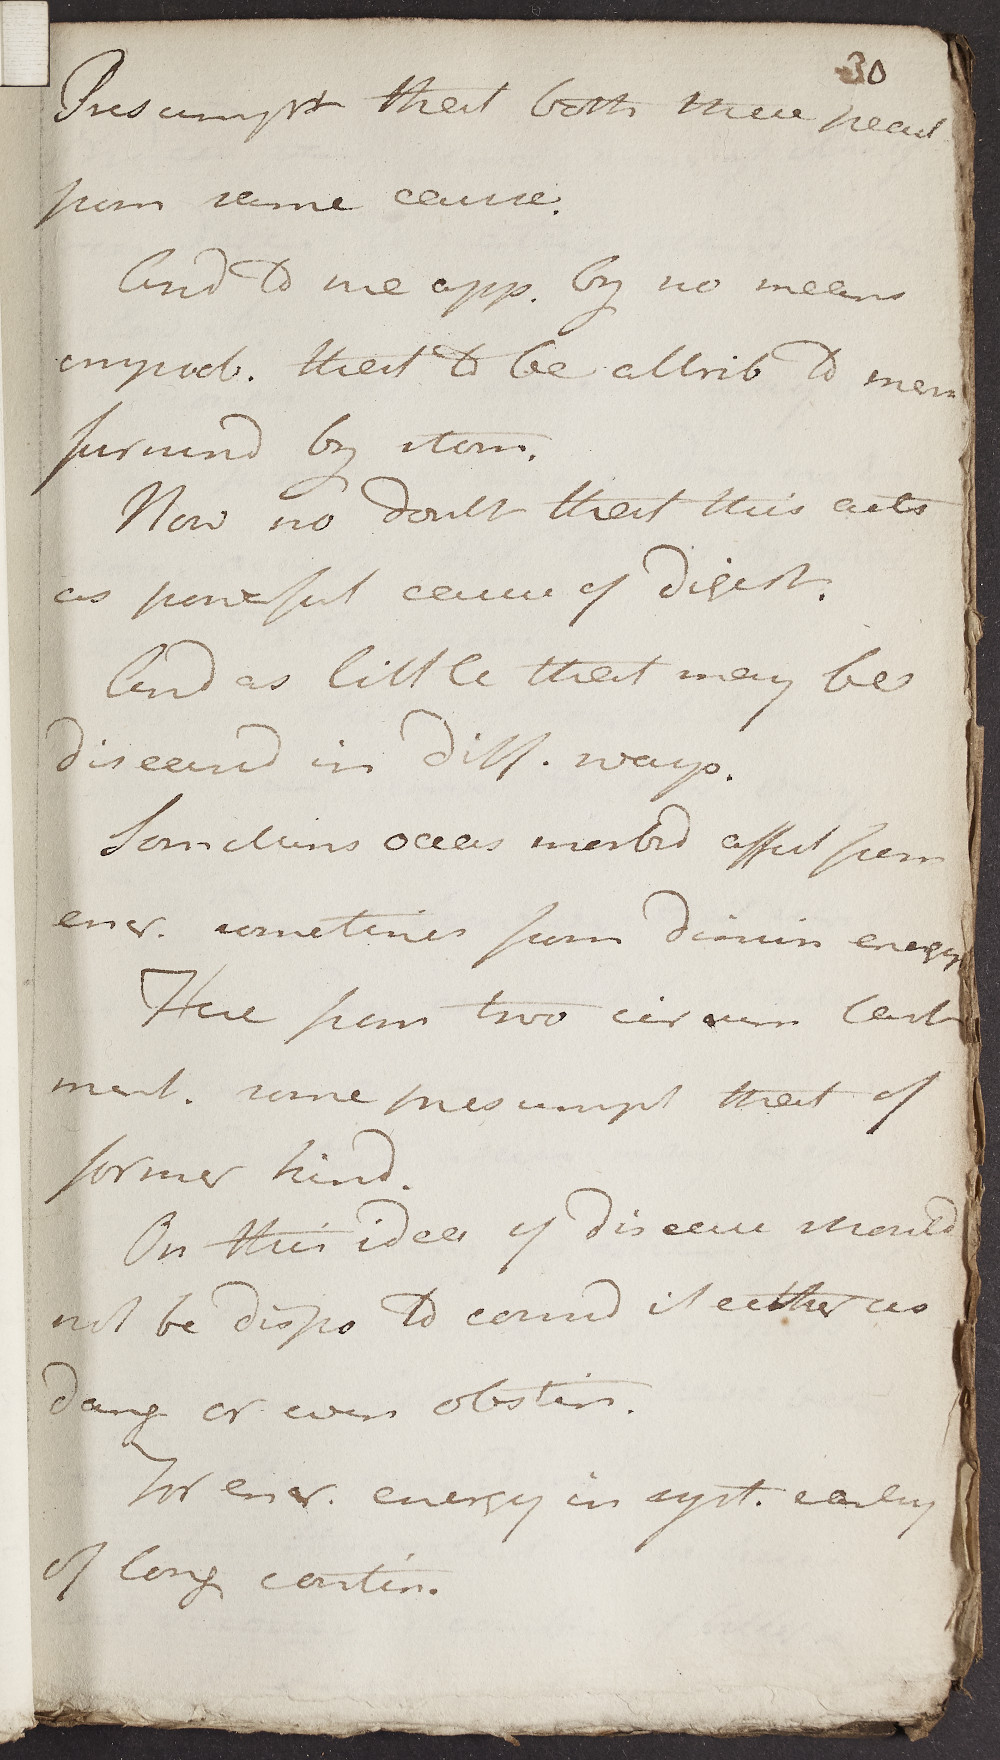 30
Presumpt that both these pecul
from same cause.
And to me app. by no means
improb. that to be attrib to men
furnind by stom.
Now no doubt that this acts
as powerful cause of digest.
And as little that may be
diseased in diff. ways.
Sometimes occas morbid affect from
encr. sometimes from dimin energy
Here from two circum last
ment. some presumpt that of
former kind.
On this idea of disease should
not be dispo to consid it either as
dang or even obstin.
For encr. energy in syst. early
of long contin.